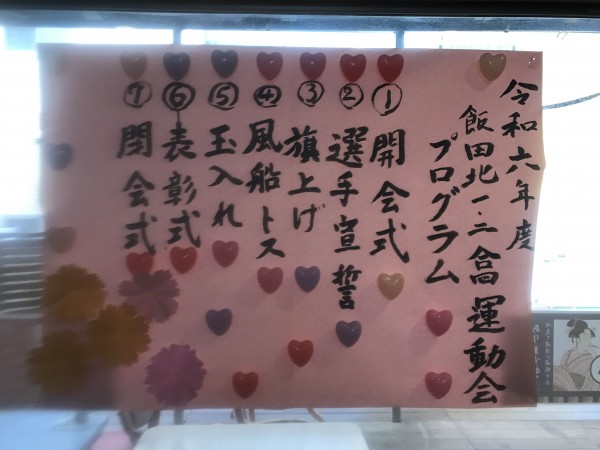 令和六年度
飯田北一・二合同運動会
プログラム
①開会式
②選手宣誓
③旗上げ
④風船トス
⑤玉入れ
⑥表彰式
⑦閉会式